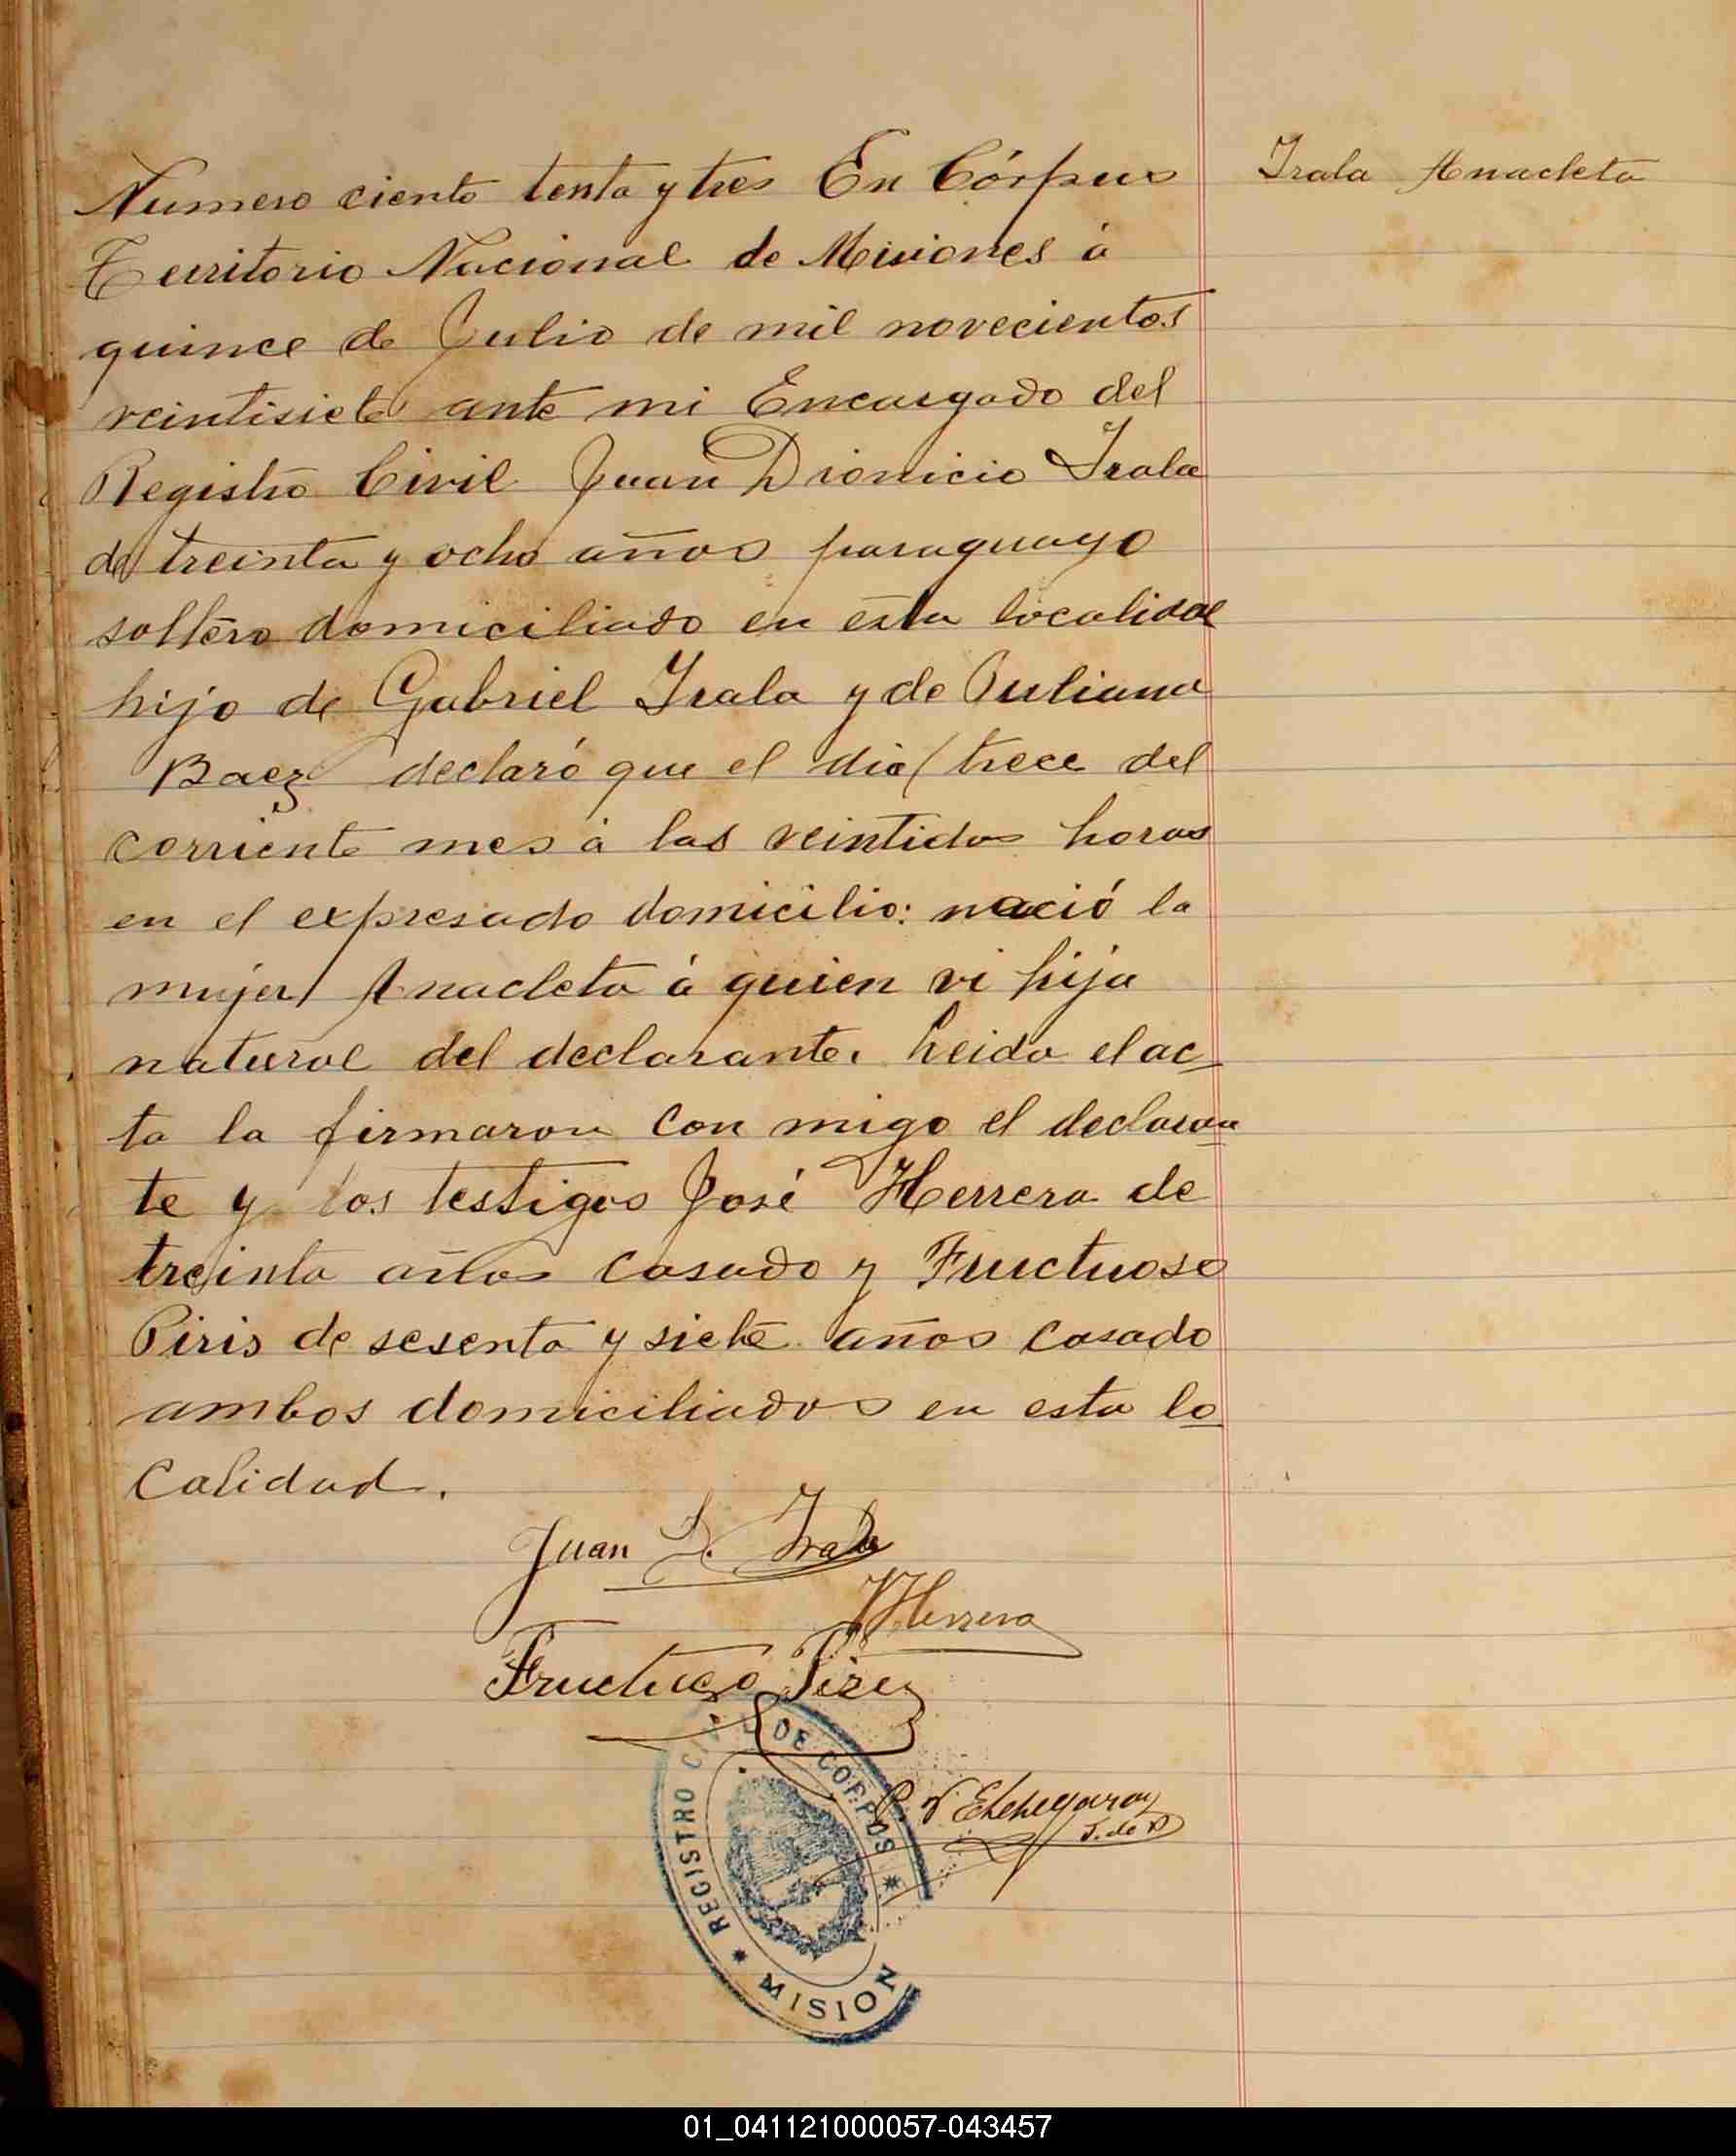 Irala Anacleta
Numero ciento tenta y tres En Córpus
Territorio Nacional de Misiones á
quince de Julio de mil novecientos
veintisiete ante mi Encargado del
Registro Civil Juan Dionicio Irala
de treinta y ocho años paraguayo
soltero domiciliado en esta localidad
hijo de Gabriel Irala y de Juliana
Baez declaró que el dia trece del
corriente mes á las veintidos horas
en el expresado domicilio: nació la
mujer Anacleta á quien vi hija
natural del declarante. Leida el ac-
ta la firmaron con migo el declaran
te y los testigos José Herrera de
treinta años casado y Fructuoso
Piris de sesenta y siete años casado
ambos domiciliados en esta lo
calidad.
Juan D. Irala
JHerrera
Fructuoso Piris
Etchegaray
J. de P
REGISTRO CIVIL DE CORPUS * MISION
01_041121000057-043457